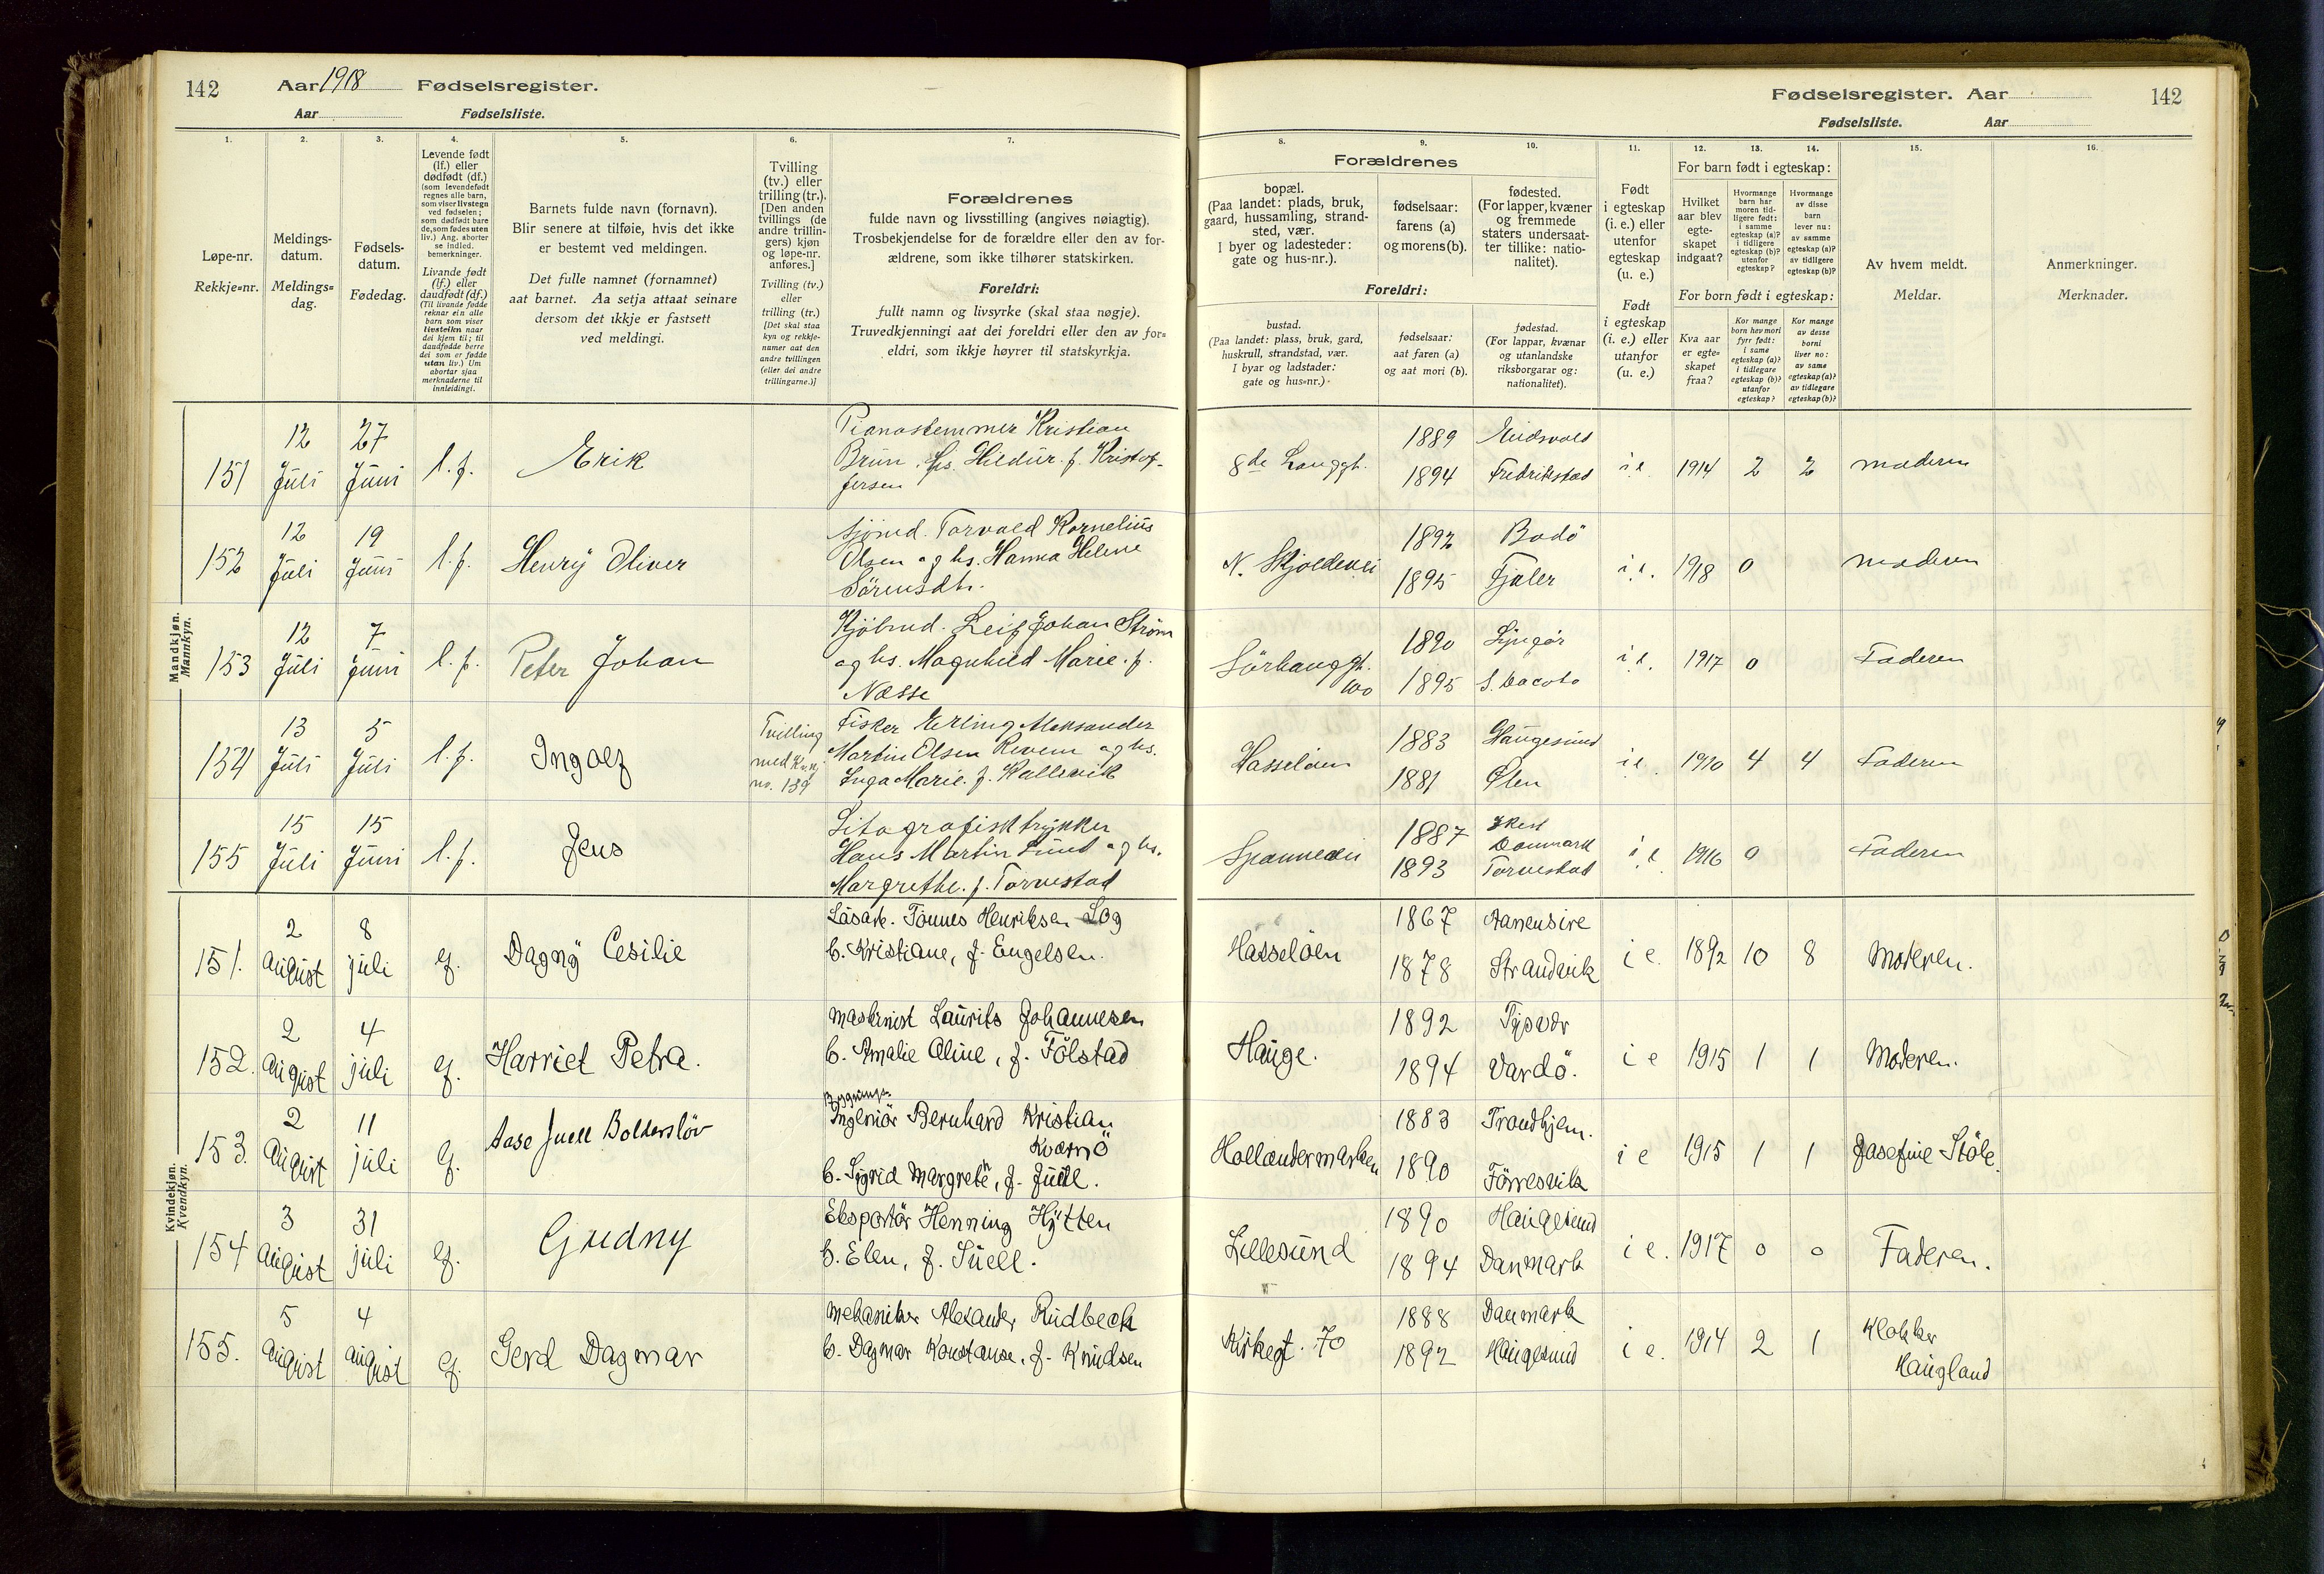 142 Aar 1918 Fødselsregister.
Aar Fødselsliste.
Fødselsregister. Aar 142
Fødselsliste. Aar
1. 2. 3. 4. 5. 6. 7.
8. 9. 10. 11. 12. 13. 14. 15. 16.
Løpe-nr.
Rekkje-nr.
Meldings-
datum.
Meldings-
dag.
Fødsels-
datum.
Fødedag.
Levende født
(lf.) eller
dødfødt (df.)
(som levendefødt
regnes alle barn,
som viser livstegn
ved fødselen;
som dødfødt bare
de, som fødes uten
liv.) Ang. aborter
se indled.
bemerkninger.
Livande født
(lf.) eller
daudfødt (df.)
(Til livande fødde
reknar ein alle
barn som viser
livsteikn naar
dei kjem til; til
daudfødde berre
dei som er fødde
utan liv.) Um
abortar sjaa
merknaderne til
innleidingi.
Barnets fulde navn (fornavn).
Blir senere at tilføie, hvis det ikke
er bestemt ved meldingen.
Det fulle namnet (fornamnet)
aat barnet. Aa setja attaat seinare
dersom det ikkje er fastsett
ved meldingi.
Tvilling
(tv.) eller
trilling (tr.).
[Den anden
tvillings (de
andre trillin-
gers) kjøn
og løpe-nr.
anføres.]
Tvilling (tv.)
eller
trilling (tr.)
[Det skal staa
kyn og rekkje-
numer aat den
andre tvillingen
(eller dei andre
trillingarne.)]
Forældrenes
fulde navn og livsstilling (angives nøiagtig).
Trosbekjendelse for de forældre eller den av for-
ældrene, som ikke tilhører statskirken.
Foreldri:
fullt namn og livsyrke (skal staa nøgje).
Truvedkjenningi aat dei foreldri eller den av for-
eldri, som ikkje høyrer til statskyrkja.
Forældrenes
bopæl.
(Paa landet: plads, bruk,
gaard, hussamling, strand-
sted, vær.
I byer og ladesteder:
gate og hus-nr.).
fødselsaar:
farens (a)
og morens (b).
fødested.
(For lapper, kvæner
og fremmede
staters undersaat-
ter tillike: natio-
nalitet).
Foreldri:
bustad.
(Paa landet: plass, bruk, gard,
huskrull, strandstad, vær.
I byar og ladstader:
gate og hus-nr.)
fødselsaar:
aat faren (a)
og aat mori (b).
fødestad.
(For lappar, kvænar
og utanlandske
riksborgarar og:
nationalitet).
Født
i egteskap
(i. e.) eller
utenfor
egteskap
(u. e.)
Født
i egteskap
(i. e.) eller
utanfor
(u. e.)
For barn født i egteskap:
Hvilket
aar blev
egte-
skapet
indgaat?
Hvormange
barn har
moren tid-
ligere født:
i samme
egteskap (a)?
i tidligere
egteskap (b)?
utenfor
egteskap?
Hvormange
av disse
barn
lever nu:
av samme
egteskap (a)?
av tidligere
egteskap (b)?
For born født i egteskap:
Kva aar
er egte-
skapet
fraa?
Kor mange
born hev mori
fyrr født:
i same
egteskap (a)?
i tidlegare
egteskap (b)?
utanfor
egteskap?
Kor mange
av desse
borni
liver no:
av same
egteskap (a)?
av tidlegare
egteskap (b)?
Av hvem meldt.
Meldar.
Anmerkninger.
Merknader.
Mandkjøn.
Mannkyn.
151 12 Juli 27 Juni l.f. Erik
Pianostemmer Kristian
Brun. Hs. Hildur. f. Kristof-
fersen
8de Langgt. 1889 Eidsvold i.e. 1914 2 2 moderen
1894 Fredrikstad
152 12 Juli 19 Juni l.f. Henry Oliver
Sjömd. Torvald Kornelius
Olsen og hs. Hanna Helene
Sörensdtr.
N. Skjoldvei 1892 Bodö i.e. 1918 0 moderen
1895 Fjaler
153 12 Juli 7 Juni l.f. Peter Johan
Kjöbmd. Leif Johan Ström
og hs. Magnhild Marie. f.
Næsse
Sörhauggt. 100 1890 Lyngör i.e. 1917 0 Faderen
1895 S. Dacota
154 13 Juli 5 Juli l.f. Ingolf
Tvilling
med Kv.kj.
no. 139
Fisker Erling Aleksander
Martin Olsen Revem og hs.
Inga Marie. f. Kallevik
Hasselöen 1883 Haugesund i.e. 1910 4 4 Faderen
1881 Ølen
155 15 Juli 15 Juni l.f. Jens
Litografisktrykker
Hans Martin Lund og hs.
Margrethe. f. Torvestad
Spannevei 1887 Danmark i.e. 1916 0 Faderen
1893 Torvestad
Kvindekjøn.
Kvendkyn.
151. 2 August 8 juli lf. Dagny Cesilie
Lösarb. Tönnes Henriksen Log
h. Kristiane, f. Engelsen.
Hasselöen 1867 Aanensire i e. 1892 10 8 Moderen.
1878 Strandvik
152. 2 August 4 juli lf. Harriet Petra.
maskinist Laurits Johannesen
h. Amalie Aline, f. Fölstad
Hauge. 1892 Tysvær i e 1915 1 1 Moderen.
1894 Vardö.
153. 2 August 11 juli lf. Aase Juell Bolderslöv
Bygnings-
Ingeniör Bernhard Kristian
Kværnö
h. Sigrid Margrete, f. Juell.
Hollendermarken 1883 Trondhjem. i e 1915 1 1 Josefine Stöle.
1890 Förresvik
154 3 August 31 juli lf. Gudny
Eksportör Henning Hytten
h. Elen, f. Suell.
Lillesund 1890 Haugesund i e. 1917 0 0 Faderen.
1894 Danmark
155. 5 August 4 August lf. Gerd Dagmar
Mekaniker Alexander Rudbeck
h. Dagmar Konstanse, f. Knudsen
Kirkegt. 70 1888 Danmark i e. 1914 2 1 Klokker
1892 Haugesund Haugland